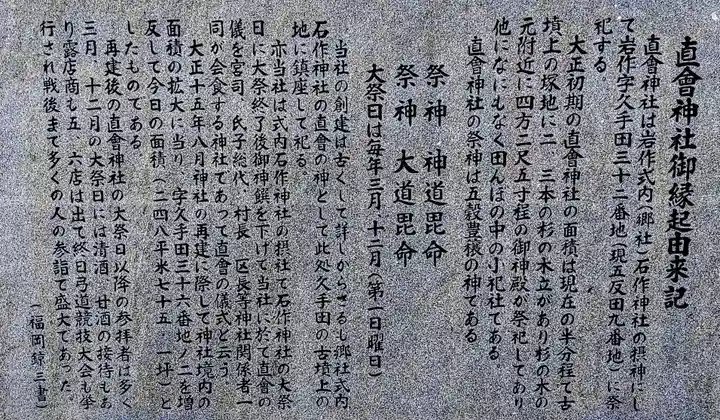 直會神社御縁起由来記
直會神社は岩作式内(郷社)石作神社の摂神にし
て岩作字久手田三十二番地(現五反田九番地)に祭
祀する。
大正初期の直會神社の面積は現在の半分程で古
墳上の塚地に二 三本の杉の木立があり杉の木の
元附近に四方二尺五寸程の御神殿が祭祀してあり
他になにもなく田んぼの中の小祀社である
直會神社の祭神は五穀豊穣の神である
祭神 神道毘命
祭神 大道毘命
大祭日は毎年三月、十二月(第一日曜日)
当社の創建は古くして詳しからざるも郷社式内
石作神社の直會の神として此処久手田の古墳上の
地に鎮座して祀る。
亦当社は式内石作神社の摂社で石作神社の大祭
日に大祭終了後御神饌を下げて当社に於て直會の
儀を宮司、氏子総代、村長、区長等神社関係者一
同が会食する神社であって直會の儀式と云う
大正十五年八月神社の再建に際して神社境内の
面積の拡大に当り、字久手田三十六番地ノ二を増
反して今日の面積(二四八平米七十五、一坪)と
したものである。
再建後の直會神社の大祭日以降の参拝者は多く
三月、十二月の大祭日には清酒、甘酒の接待もあ
り露店商も五 六店は出て終日弓道競技大会も挙
行され戦後まで多くの人の参詣で盛大であった
(福岡錦三書)